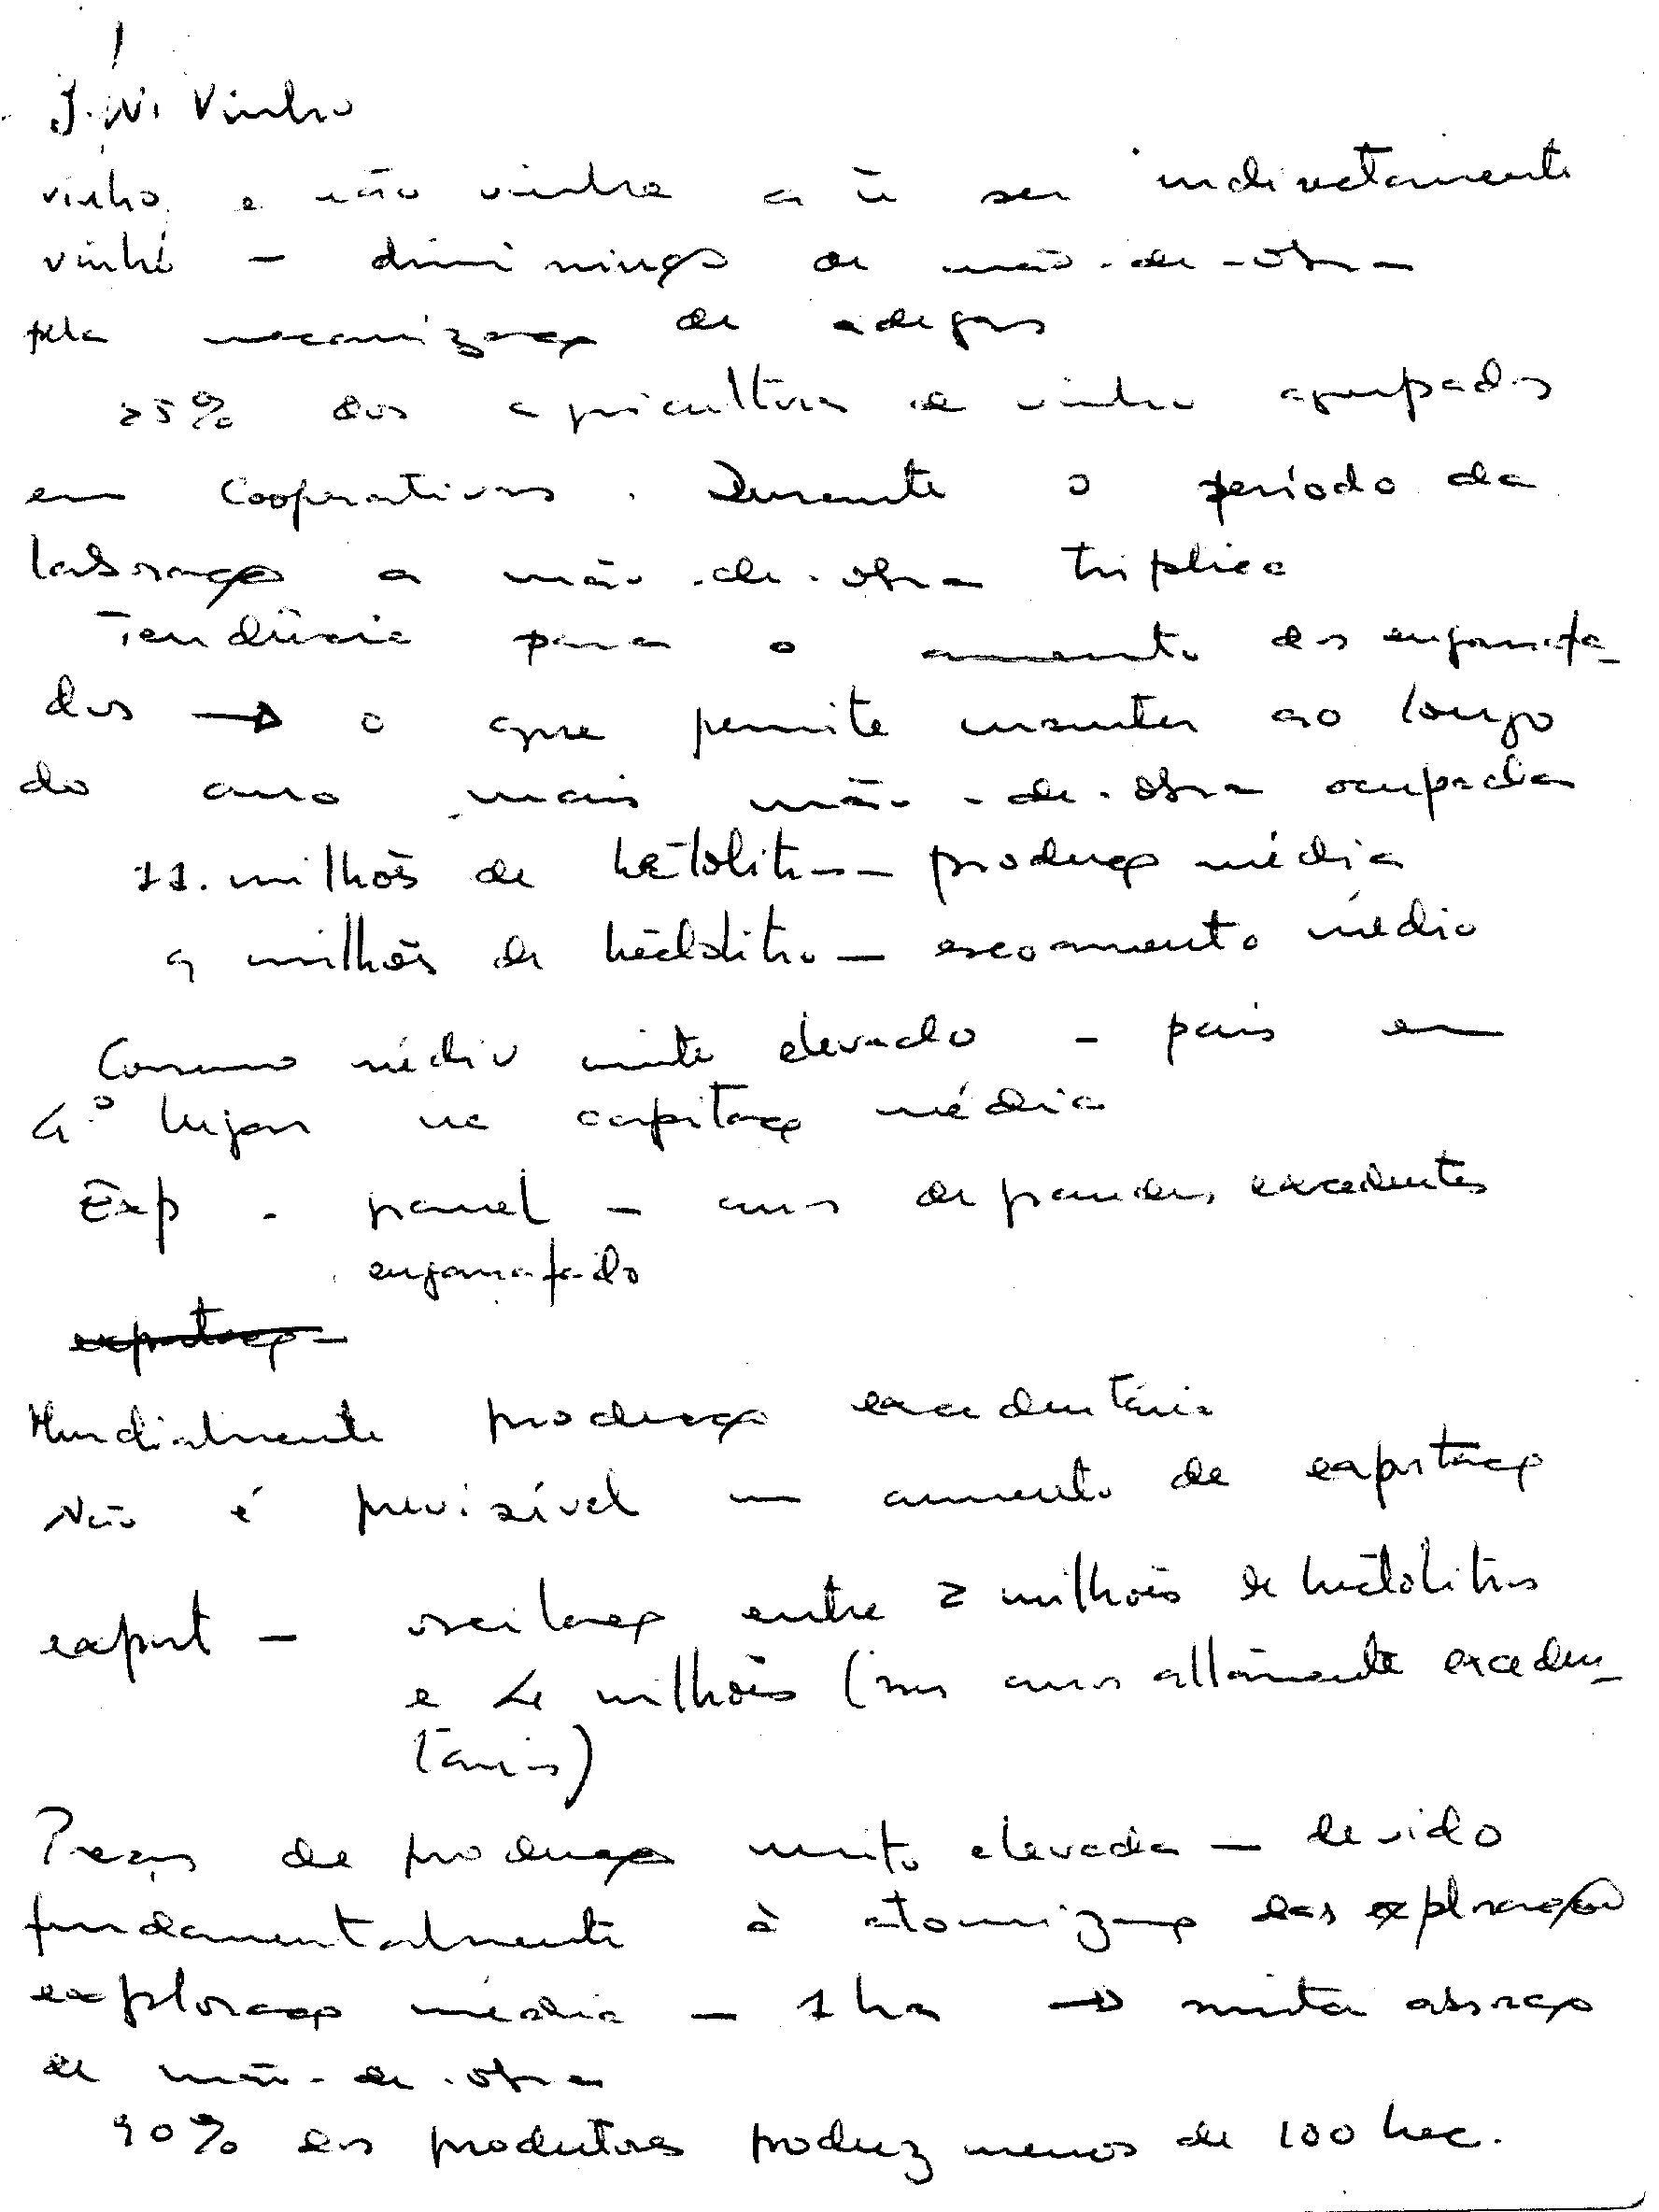 J. N. Vinho
vinho e não vinha a não ser indirectamente
vinho – diminuição de mão-de-obra
pela mecanização de adegas
25% dos agricultores de vinho agrupados
em Cooperativas. Durante o período da
laboração a mão-de-obra triplica
Tendência para o aumento dos engarrafa-
dos → o que permite manter ao longo
do ano mais mão-de-obra ocupada
11 milhões de hectolitros – produção média
9 milhões de hectolitros – escoamento médio
Consumo médio muito elevado – país em
4.º lugar na capitação média
Exp. granel – anos de grandes excedentes
engarrafado
exportação –
Mundialmente produção excedentária
Não é previsível um aumento de exportação
export – oscilação entre 2 milhões de hectolitros
e 4 milhões (nos anos altamente exceden-
tários)
Preços de produção muito elevada – devido
fundamentalmente à atomização das explorações
exploração média – 1 ha → muita absorção
de mão-de-obra
90% dos produtores produz menos de 100 hec.